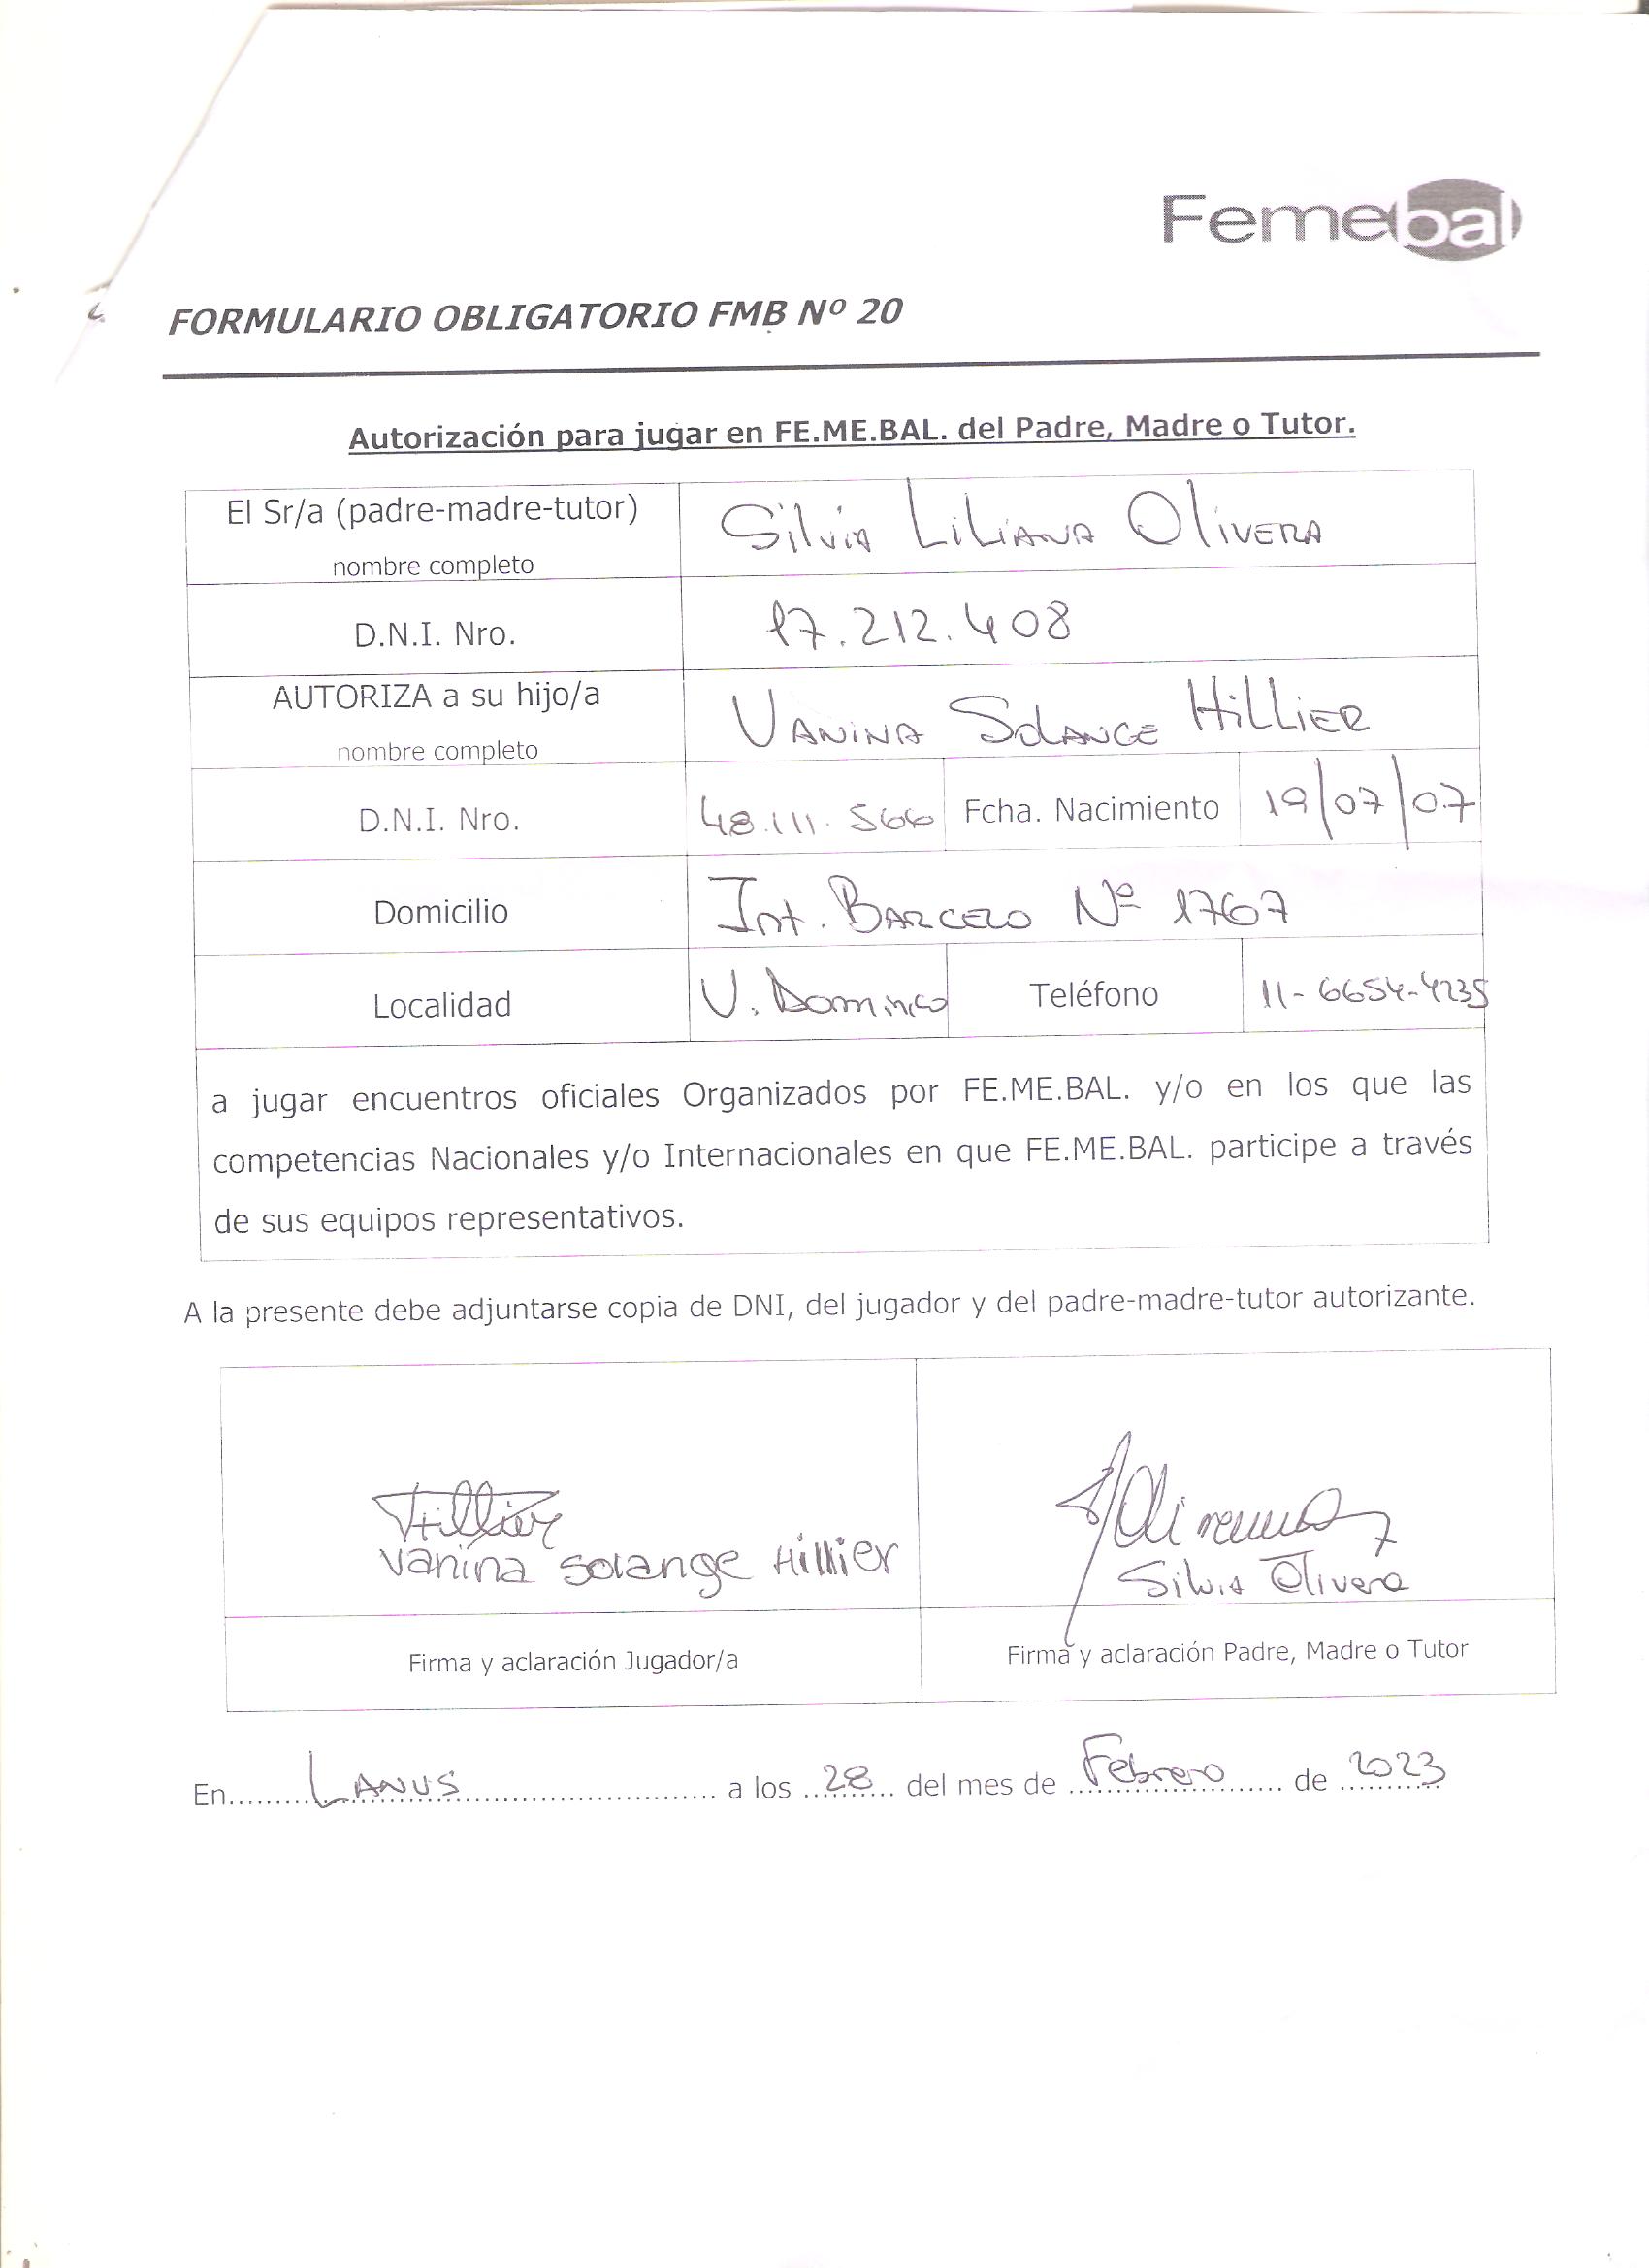 Femebal
FORMULARIO OBLIGATORIO FMB Nº 20
Autorización para jugar en FE.ME.BAL. del Padre, Madre o Tutor.
El Sr/a (padre-madre-tutor)
nombre completo
Silvia Liliana Olivera
D.N.I. Nro.
17.212.408
AUTORIZA a su hijo/a
nombre completo
Vanina Solange Hillier
D.N.I. Nro.
48.111.566
Fcha. Nacimiento
19/07/07
Domicilio
Int. Barcelo Nº 1767
Localidad
V. Dominico
Teléfono
11-6654-4235
a jugar encuentros oficiales Organizados por FE.ME.BAL. y/o en los que las
competencias Nacionales y/o Internacionales en que FE.ME.BAL. participe a través
de sus equipos representativos.
A la presente debe adjuntarse copia de DNI, del jugador y del padre-madre-tutor autorizante.
Hillier
Vanina Solange Hillier
Silvia Olivera
Firma y aclaración Jugador/a
Firma y aclaración Padre, Madre o Tutor
En........Lanus........ a los 28 del mes de Febrero de 2023